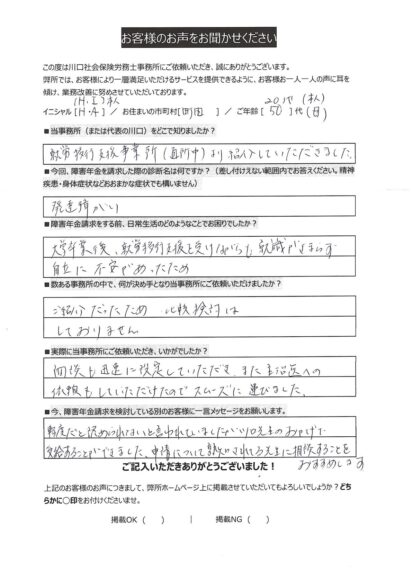 お客様のお声をお聞かせください
この度は川口社会保険労務士事務所にご依頼いただき、誠にありがとうございます。
弊所では、お客様により一層満足いただけるサービスを提供できるように、お客様お一人一人の声に耳を
傾け、業務改善に努めさせていただいております。
(H.I)本人 20代 (本人)
イニシャル[H.A] / お住まいの市町村[町田] / ご年齢[50]代(母)
■当事務所(または代表の川口)をどこで知りましたか?
就労移行支援事業所(通所中)より紹介していただきました。
■今回、障害年金を請求した際の診断名は何ですか?(差し付けえない範囲内でお答えください。精神
疾患・身体症状などおおまかな症状でも構いません)
発達障がい
■障害年金請求をする前、日常生活のどのようなことでお困りでしたか?
大学卒業後、就労移行支援を受けながらも就職がきまらず
自立に不安があったため
■数ある事務所の中で、何が決め手となり当事務所にご依頼いただけましたか?
ご紹介だったため 比較検討は
しておりません
■実際に当事務所にご依頼いただき、いかがでしたか?
面談も迅速に設定していただき、また主治医への
依頼もしていただけたのでスムーズに運びました。
■今、障害年金請求を検討している別のお客様に一言メッセージをお願いします。
軽度だと認められないと言われていましたが川口先生のおかげで
受給することができました。申請については川口先生に相談することを
おすすめします
ご記入いただきありがとうございました!
上記のお客様のお声につきまして、弊所ホームページ上に掲載させていただいてもよろしいでしょうか?どち
らかに○印をお付けくださいませ。
掲載OK ( ) | 掲載NG ( )